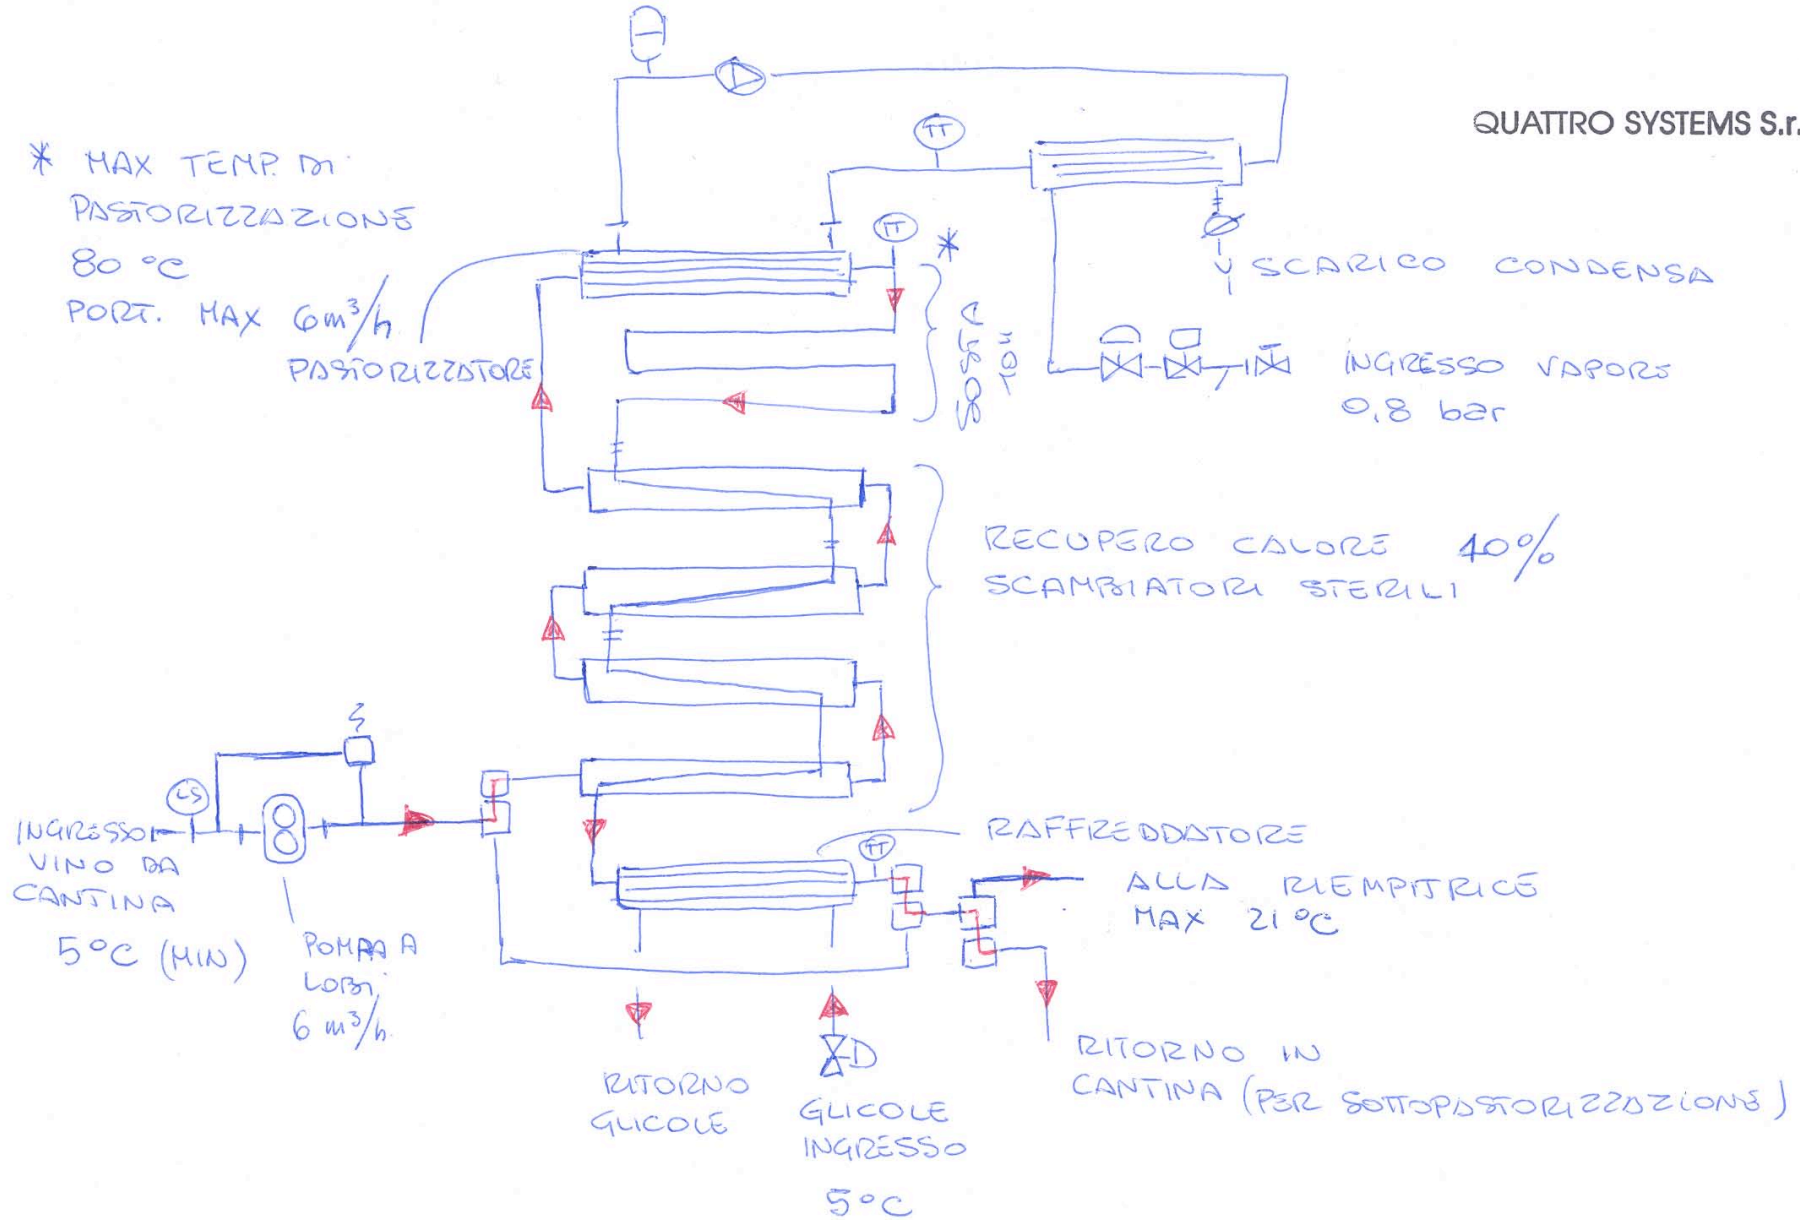 QUATTRO SYSTEMS S.r.
* MAX TEMP. DI
PASTORIZZAZIONE
80 °C
PORT. MAX 6m³/h
PASTORIZZATORE
TT
TT
*
SOSTA
SCARICO CONDENSA
INGRESSO VAPORE
0,8 bar
RECUPERO CALORE 40%
SCAMBIATORI STERILI
S
LS
INGRESSO
VINO DA
CANTINA
5°C (MIN)
POMPA A
LOBI
6 m³/h.
RAFFREDDATORE
TT
ALLA RIEMPITRICE
MAX 21°C
RITORNO
GLICOLE
GLICOLE
INGRESSO
5°C
RITORNO IN
CANTINA (PER SOTTOPASTORIZZAZIONE)